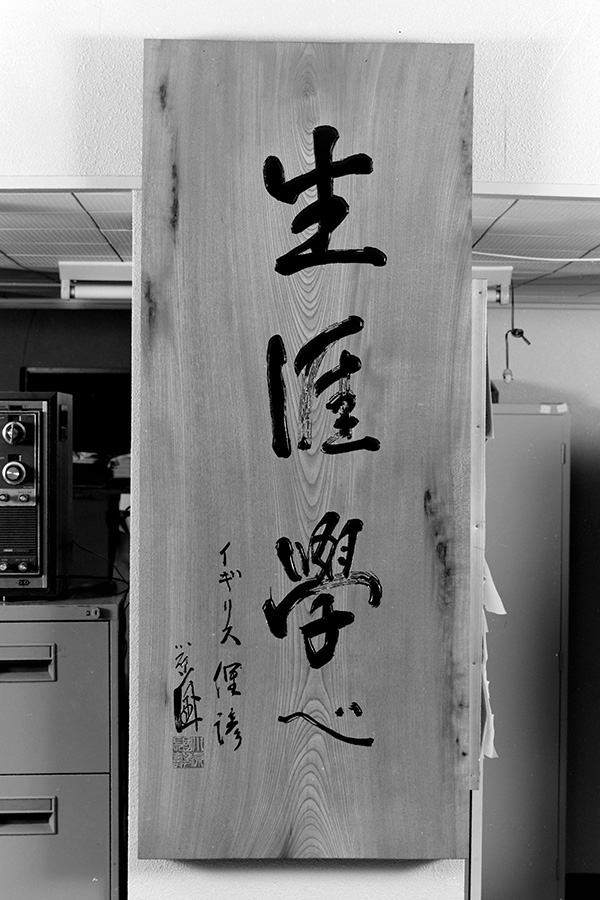 生涯學べ
イギリス俚諺